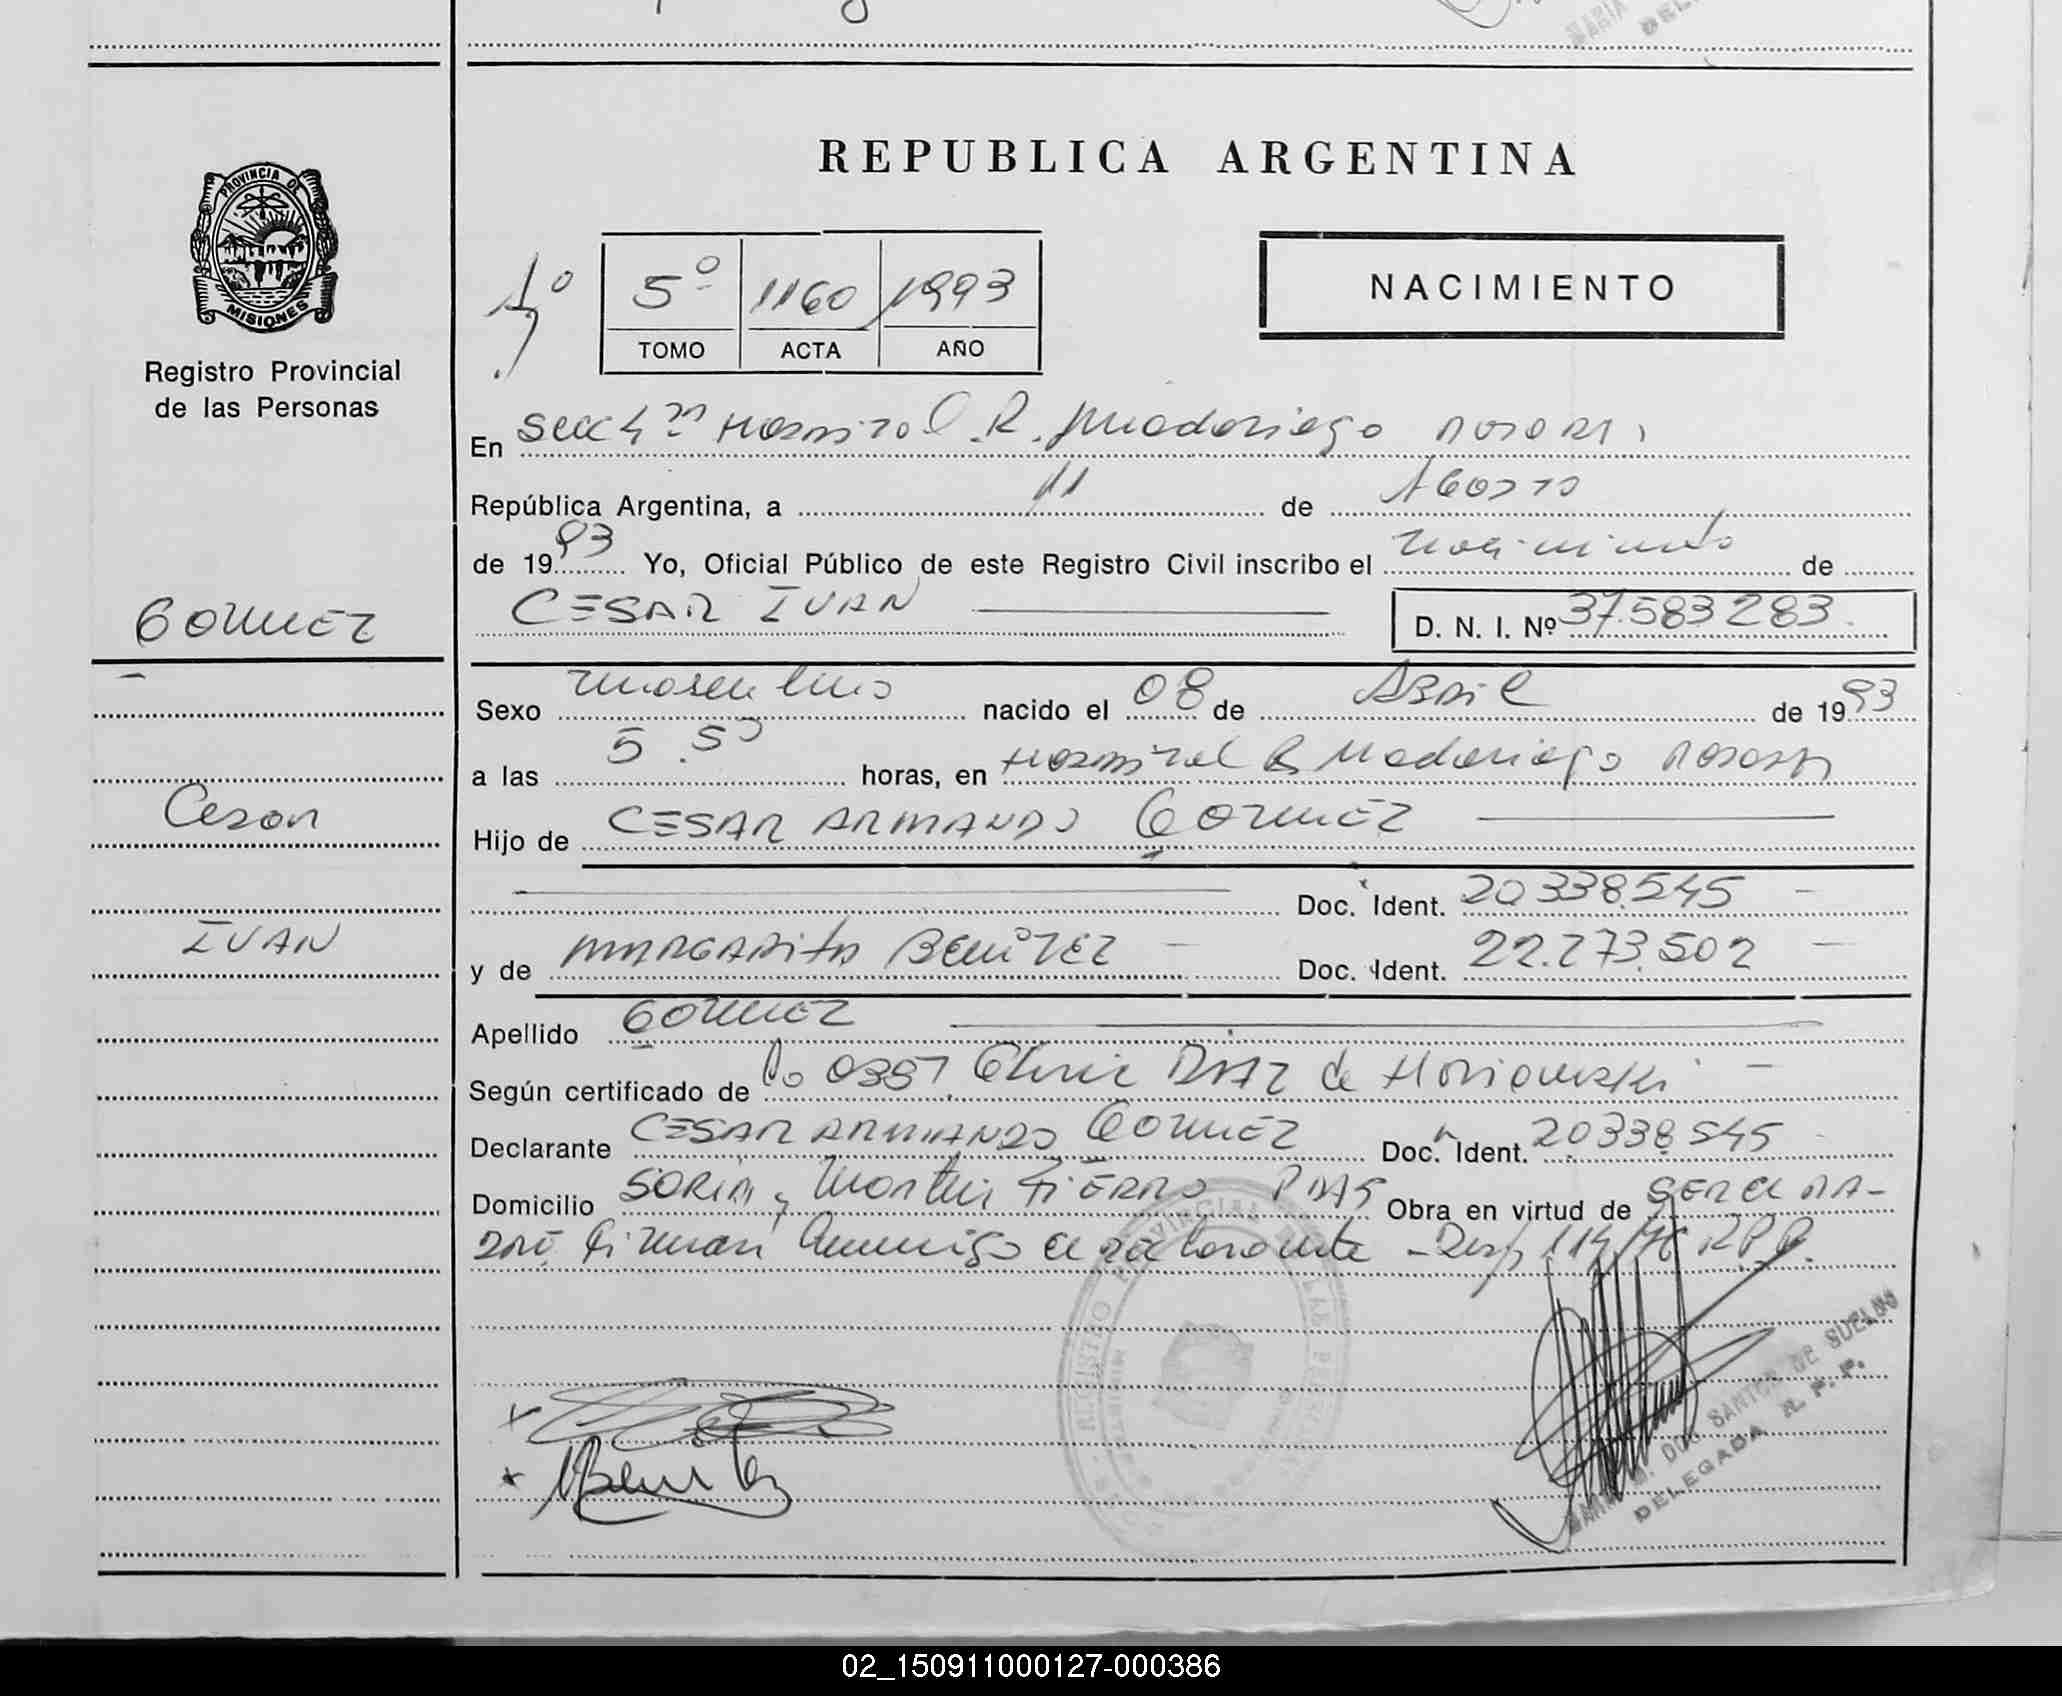 REPUBLICA ARGENTINA
PROVINCIA DE
MISIONES
Registro Provincial
de las Personas
5º 1160 1993
TOMO ACTA AÑO
NACIMIENTO
En Secc 4ta Hospital R. Madariaga Posadas
República Argentina, a 11 de Agosto
de 1993 Yo, Oficial Público de este Registro Civil inscribo el nacimiento de
CESAR IVAN D. N. I. Nº 37.583283
GOMEZ
Sexo masculino nacido el 08 de Abril de 1993
a las 5.50 horas, en Hospital R Madariaga Posadas
Cesar
Hijo de CESAR ARMANDO GOMEZ
Doc. Ident. 20338.545
IVAN
y de MARGARITA BENITEZ Doc. Ident. 22.273.502
Apellido GOMEZ
Según certificado de 0387 DIAZ de
Declarante CESAR ARMANDO GOMEZ Doc. Ident. 20338545
Domicilio SORIA y Martin FIERRO PDAS Obra en virtud de SER EL DA-
DOR, Firman Conmigo el declarante - Disp 114/76 RPP.
MBenitez
DOS SANTOS DE SUELDO
DELEGADA R. P. P.
02_150911000127-000386